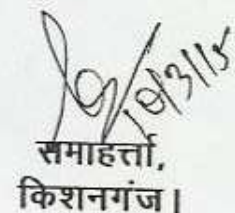 10/3/15
समाहर्त्ता,
किशनगंज।